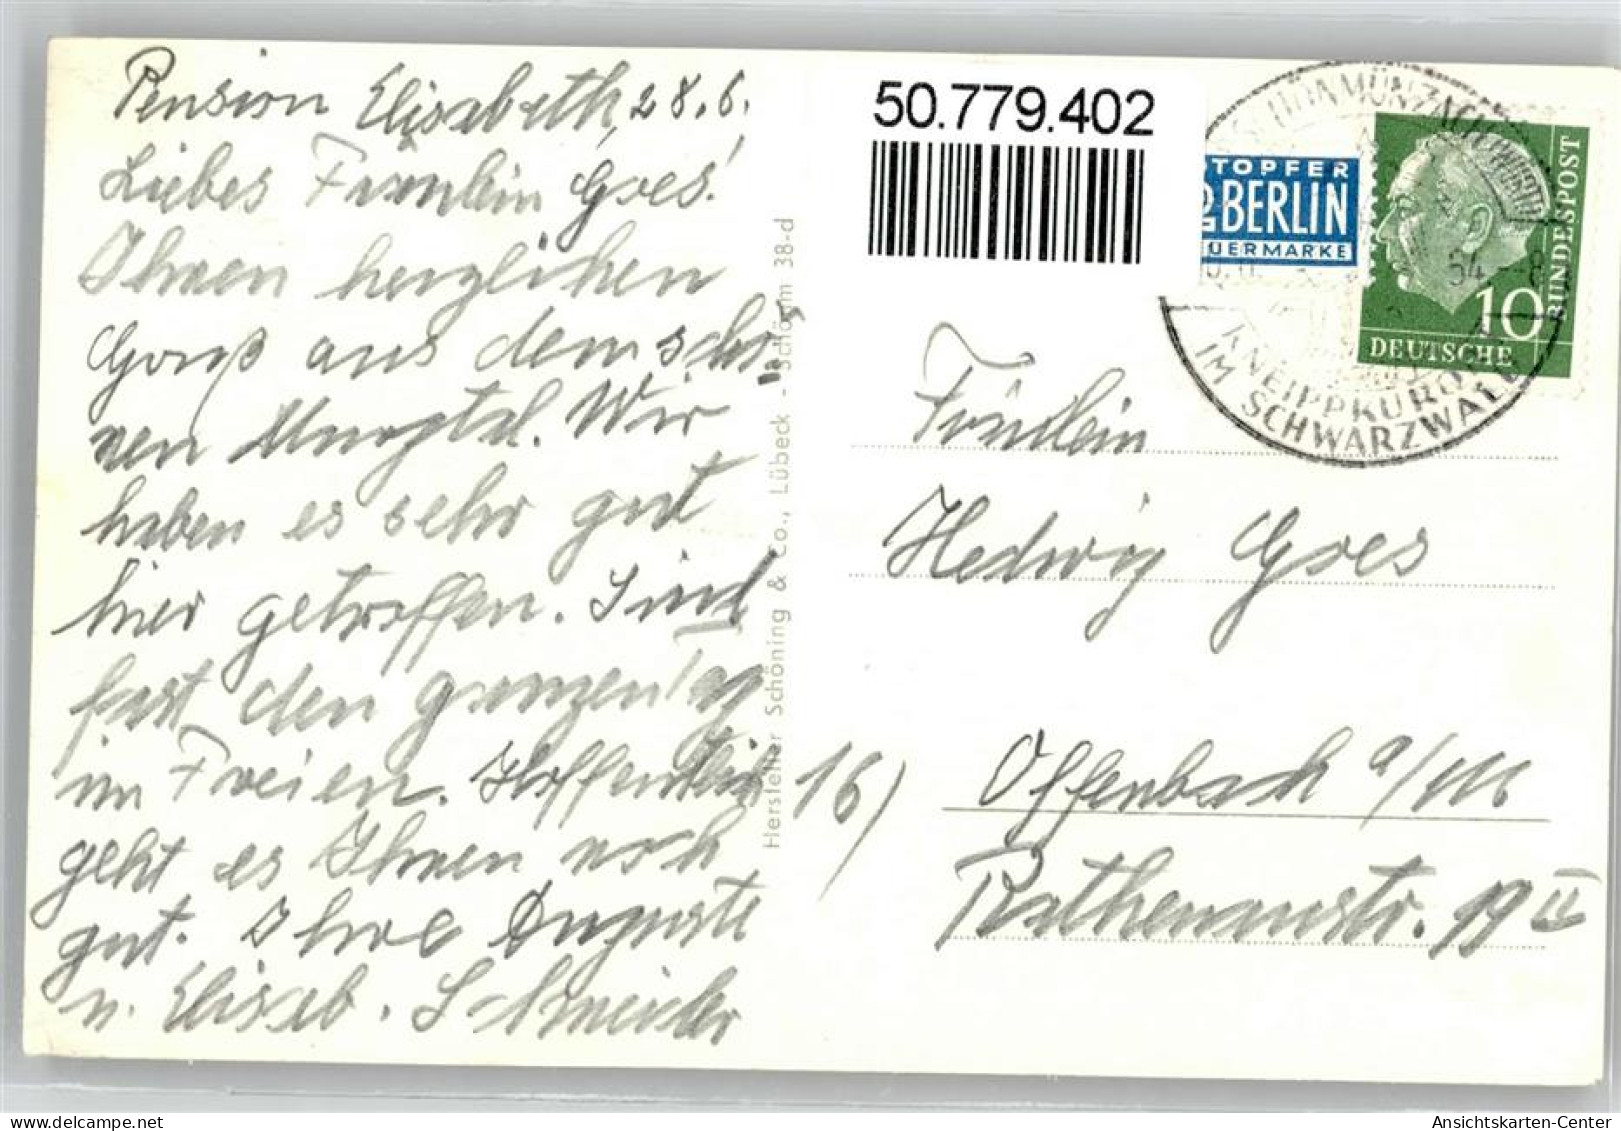 Pension Elisabeth, 28.6.
Liebes Fräulein Goes!
Ihnen herzlichen
Gruß aus dem schö-
nen Murgtal. Wir
haben es sehr gut
hier getroffen. Sind
fast den ganzen Tag
im Freien. Hoffentlich
geht es Ihnen noch
gut. Ihre Auguste
u. Elisab. Schneider
Hersteller Schöning & Co., Lübeck - Schlönm 38-d
50.779.402
NOTOPFER
2 BERLIN
STEUERMARKE
SCHÖNMÜNZACH (WÜRTT)
54 -8
KNEIPPKURORT
IM SCHWARZWALD
DEUTSCHE
BUNDESPOST
10
Fräulein
Hedwig Goes
16) Offenbach a/M
Rathenaustr. 19 II
Ansichtskarten-Center